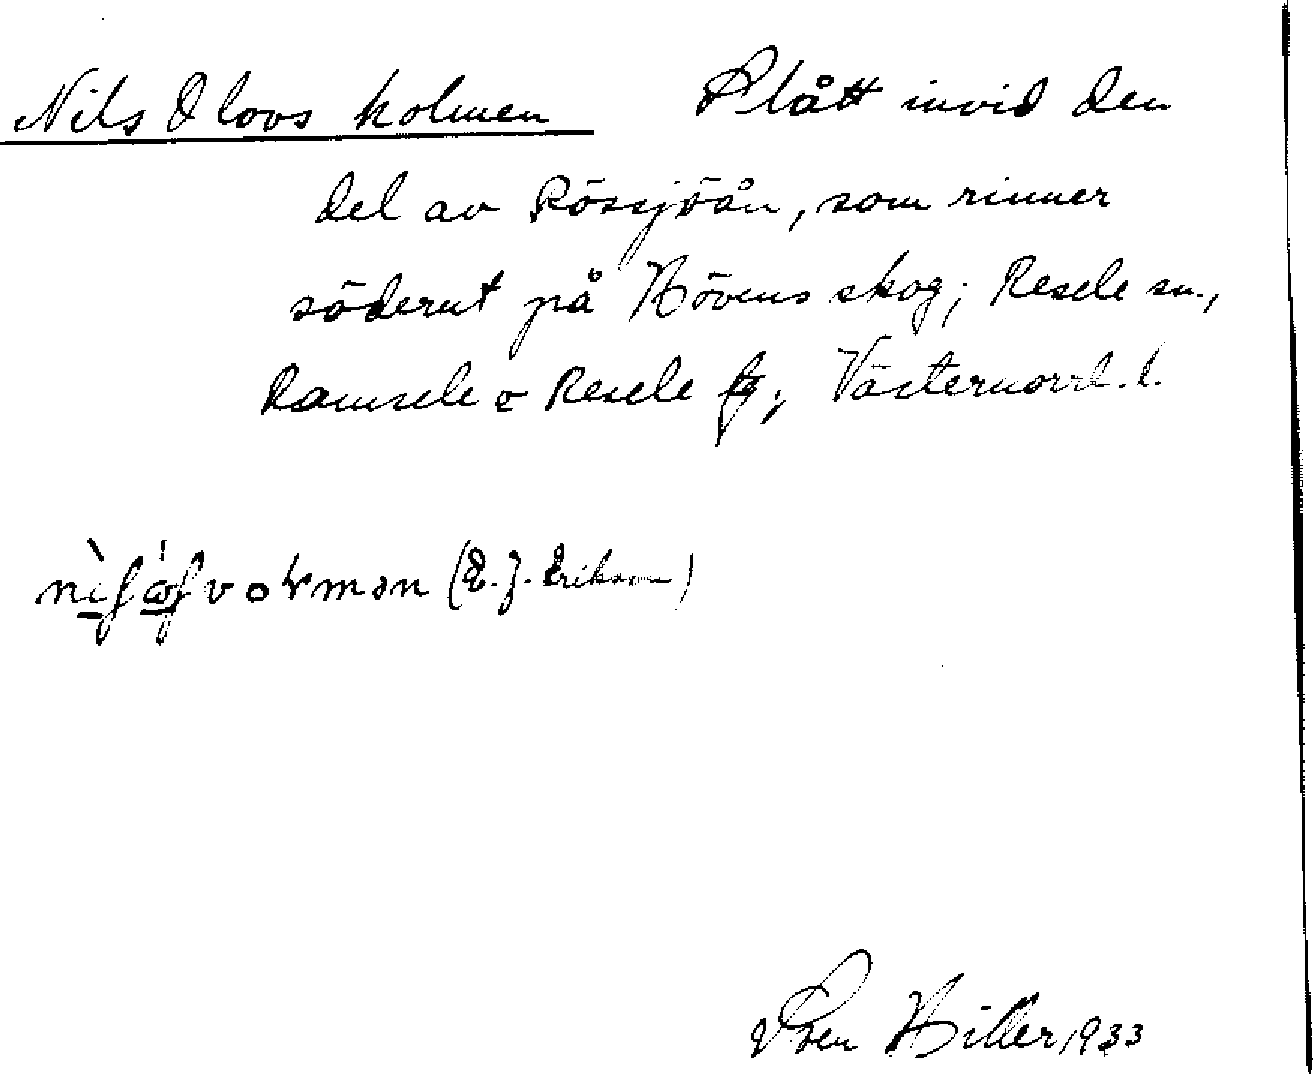 Nils Olovs holmen Slått invid den
del av Rössjöån, som rinner
söderut på Hövens skog; Resele sn.,
Ramsele o Resele tg; Västernorrl. l.
(E. J. Erikson)
Sven Hiller, 1933